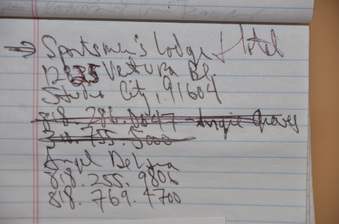 → Sportsmen's Lodge Hotel
12825 Ventura Bl.
Studio City, 91604
Angie
755.5000
Angel
818.255.9806
818.769.4700